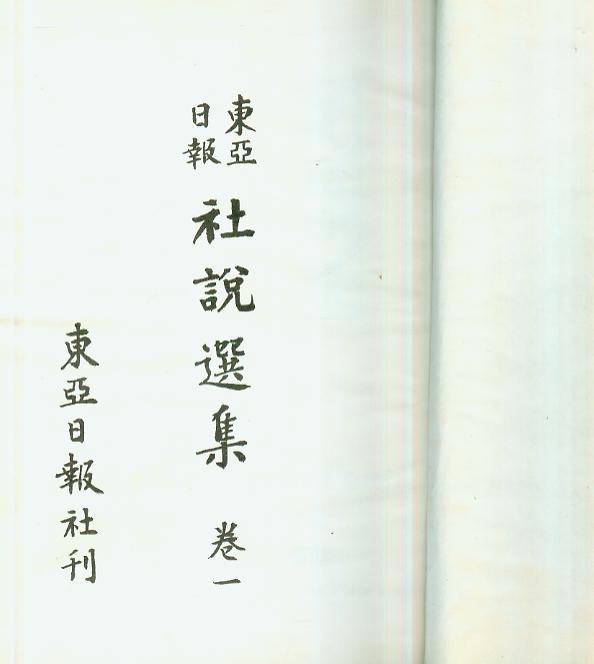 東亞日報
社說選集 卷一
東亞日報社刊